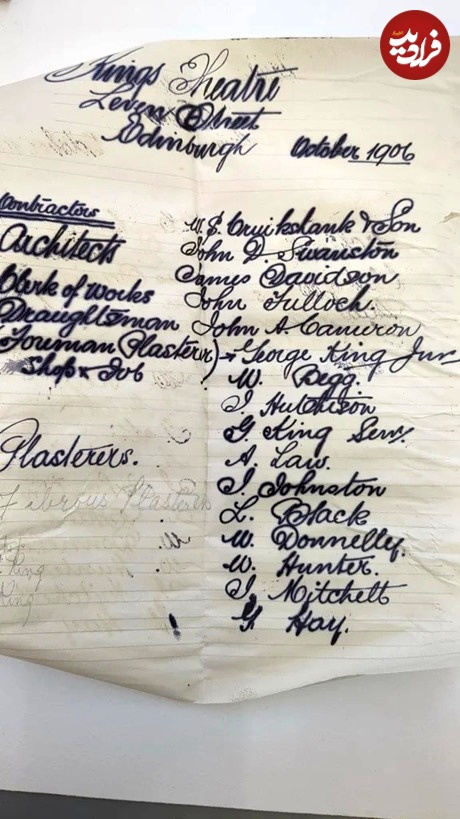 فرادید
Kings Theatre
Leven Street
Edinburgh October 1906
Contractors W. S. Cruikshank & Son
Architects John D. Swanston
James Davidson
Clerk of Works John Tulloch.
Draughtsman John A Cameron
Foreman (Plasterer) George King Junr
Shop & Job W. Begg.
J. Hutchison
G. King Senr.
Plasterers. A. Law.
J. Johnston
Fibrous Plasterers L. Black
W. Donnelly.
W. Hunter.
King J. Mitchell
King G. Hay.